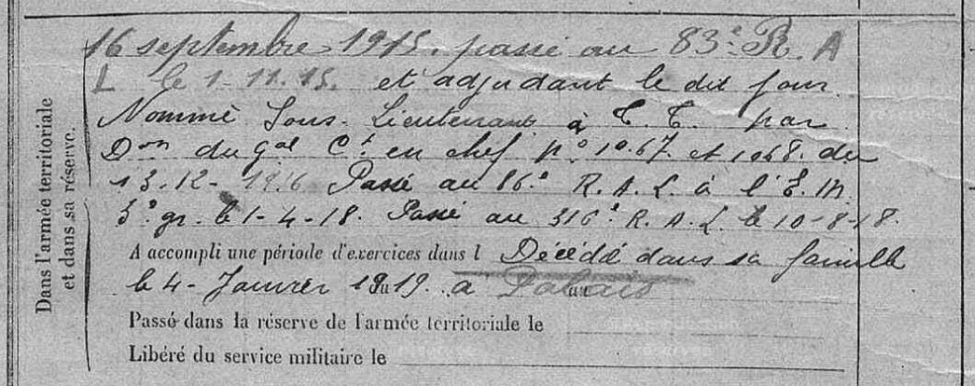 Dans l'armée territoriale
et dans sa réserve.
16 septembre 1915. passé au 83e R. A
L le 1-11.15. et adjudant le dit jour
Nommé Sous-Lieutenant à T. T. par
Don du Gal Ct en chef no 1067. et 1068. du
13.12-1916 Passé au 86e R. A. L. à l'E. M
5e gr. le 1-4-18. Passé au 316e R. A. L. le 10-8-18.
A accompli une période d'exercices dans l Décédé dans sa famille
le 4-Janvier 1919. au à Palais
Passé dans la réserve de l'armée territoriale le
Libéré du service militaire le